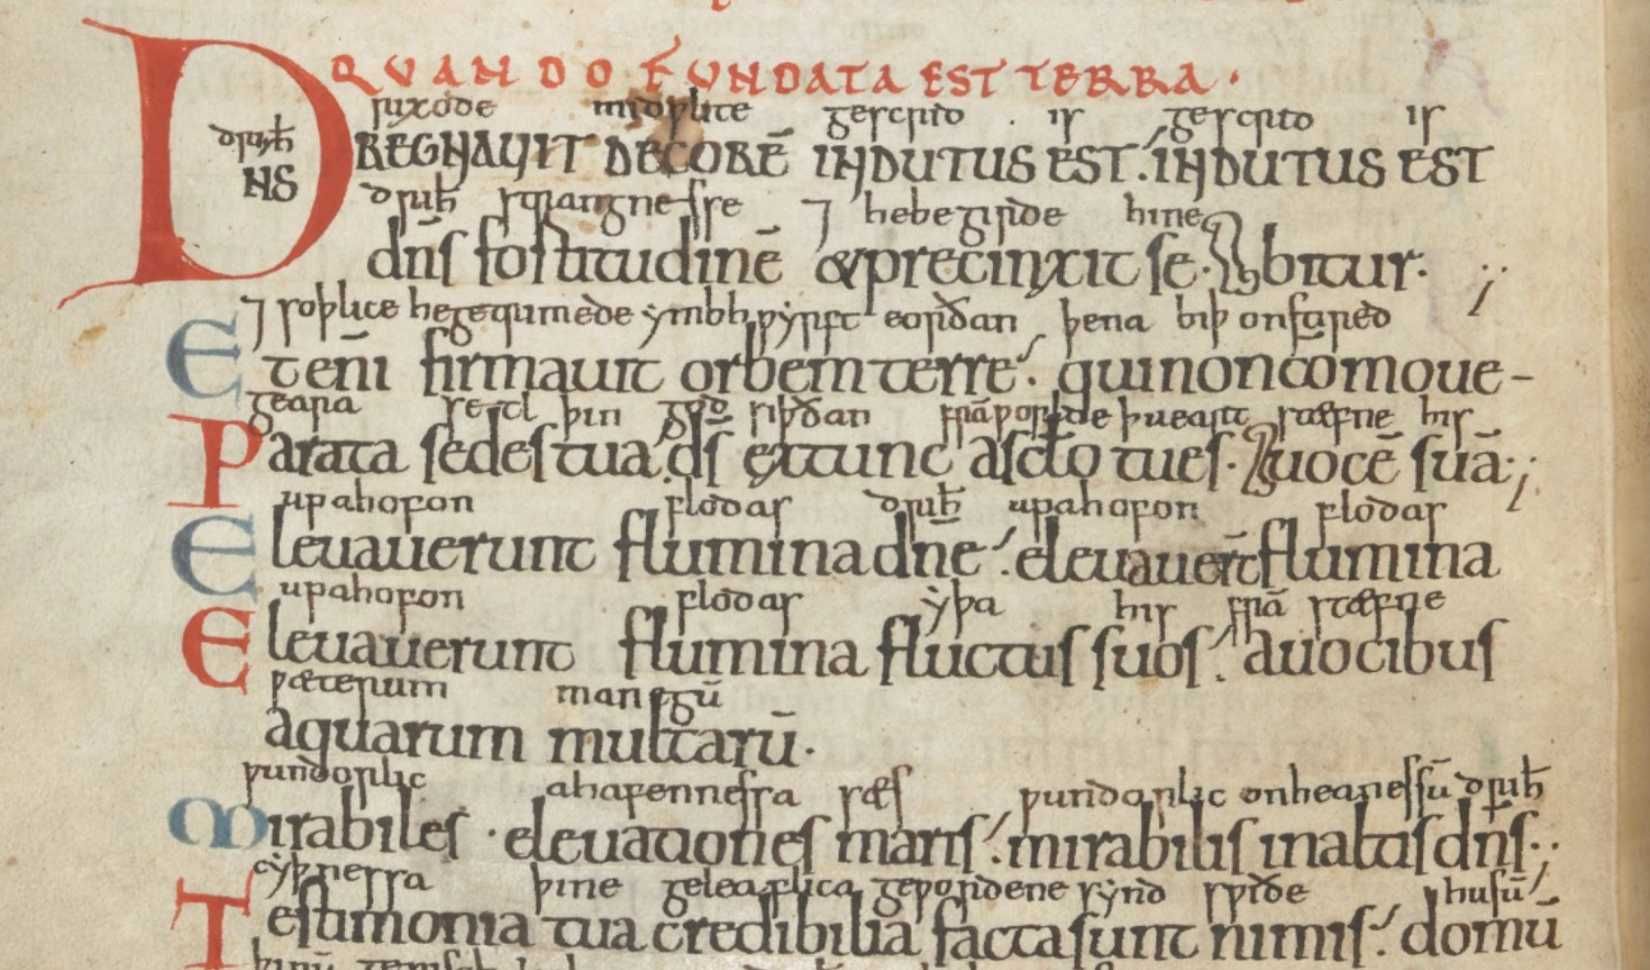 QUANDO FUNDATA EST TERRA ·
rixode midƿlite gescrid is gescrid is
driħ
DN̄S REGNAUIT DECORĒ INDUTUS EST: INDUTUS EST
driħ strangnesse ⁊ hebegirde hine
dn̄s fortitudinē & precinxit se · bitur ·
⁊ soþlice hegetrimede ymbhƿyrft eorðan þena biþ onstyred
Eten̄i firmauit orbem terre: qui non comoue-
geara setl þin god siþðan frā ƿorulde þueart stæfne his
Parata sedes tua: d̄s extunc asclo tu es · uocē suā
upahofon flodas driħ upahofon flodas
Eleuauerunt flumina dn̄e: eleuauer̄t flumina
upahofon flodas yþa his frā stæfne
Eleuauerunt flumina fluctus suos: auocibus
ƿæterum manegū
aquarum multarū ·
ƿundorlic ahafennessa sæs ƿundorlic onheanessū driħ
Mirabiles · eleuationes maris: mirabilis inaltis dn̄s ·
cyþnessa þine geleaflica geƿordene synd sƿiðe husū
Testimonia tua credibilia facta sunt nimis: domū